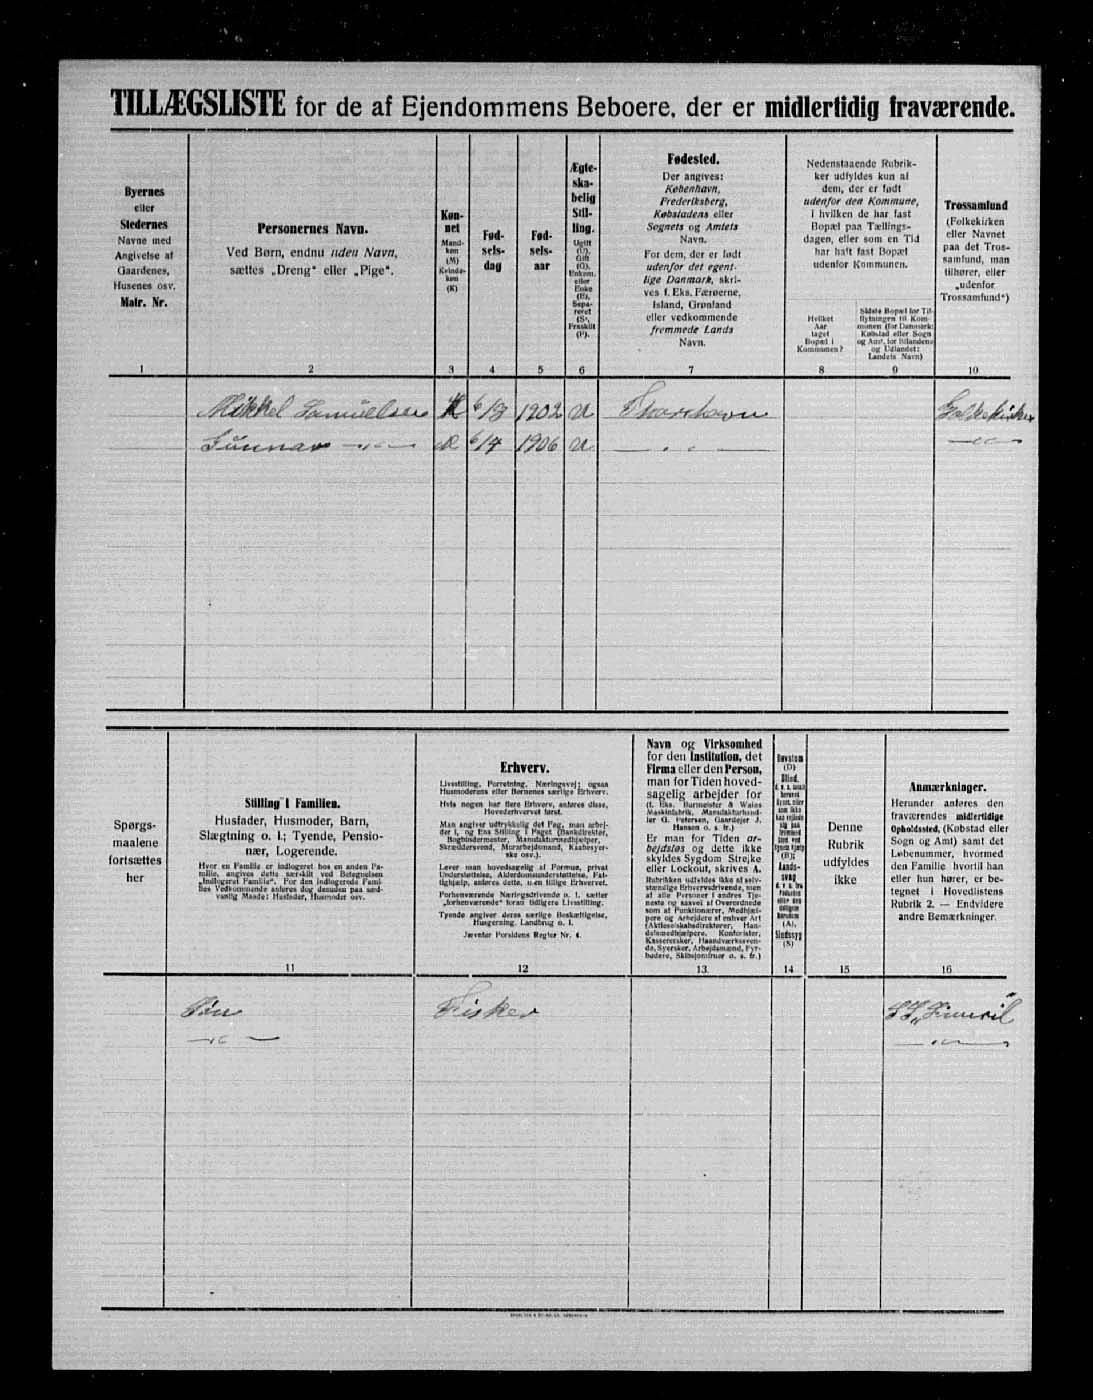 TILLÆGSLISTE for de af Ejendommens Beboere, der er midlertidig fraværende.
Byernes
eller
Stedernes
Navne med
Angivelse af
Gaardenes,
Husenes osv.
Matr. Nr.
Personernes Navn.
Ved Børn, endnu uden Navn,
sættes „Dreng“ eller „Pige“.
Køn-
net
Mand-
køn
(M)
Kvinde-
køn
(K)
Fød-
sels-
dag
Fød-
sels-
aar
Ægte-
ska-
belig
Stil-
ling.
Ugift
(U),
Gift
(G),
Enkem.
eller
Enke
(E),
Sepa-
reret
(S),
Fraskilt
(F).
Fødested.
Der angives:
København,
Frederiksberg,
Købstadens eller
Sognets og Amtets
Navn.
For dem, der er født
udenfor det egent-
lige Danmark, skri-
ves f. Eks. Færøerne,
Island, Grønland
eller vedkommende
fremmede Lands
Navn.
Nedenstaaende Rubrik-
ker udfyldes kun af
dem, der er født
udenfor den Kommune,
i hvilken de har fast
Bopæl paa Tællings-
dagen, eller som en Tid
har haft fast Bopæl
udenfor Kommunen.
Hvilket
Aar
taget
Bopæl i
Kommunen?
Sidste Bopæl før Til-
flytningen til Kom-
munen (for Danmark:
Købstad eller Sogn
og Amt, for Bilandene
og Udlandet:
Landets Navn)
Trossamfund
(Folkekirken
eller Navnet
paa det Tros-
samfund, man
tilhører, eller
„udenfor
Trossamfund“)
1 2 3 4 5 6 7 8 9 10
Mikkel Samuelsen M 6/8 1902 U Thorshavn Folkekirken
Gunnar —〃— M 6/4 1906 U —〃— —〃—
Spørgs-
maalene
fortsættes
her
Stilling i Familien.
Husfader, Husmoder, Barn,
Slægtning o. l.; Tyende, Pensio-
nær, Logerende.
Hvor en Familie er indlogeret hos en anden Fa-
milie, angives dette særskilt ved Betegnelsen
„Indlogeret Familie“. For den indlogerede Fami-
lies Vedkommende anføres dog desuden paa sæd-
vanlig Maade: Husfader, Husmoder osv.
Erhverv.
Livsstilling, Forretning, Næringsvej; ogsaa
Husmoderens eller Børnenes særlige Erhverv.
Hvis nogen har flere Erhverv, anføres disse,
Hovederhvervet først.
Man angiver udtrykkelig det Fag, man arbej-
der i, og Ens Stilling i Faget (Bankdirektør,
Bogbindermester, Manufakturmedhjælper,
Skræddersvend, Murarbejdsmand, Kaabesyer-
ske osv.).
Lever man hovedsagelig af Formue, privat
Understøttelse, Alderdomsunderstøttelse, Fat-
tighjælp, anføres dette, uden tillige Erhvervet.
Forhenværende Næringsdrivende o. l. sætter
„forhenværende“ foran tidligere Livsstilling.
Tyende angiver deres særlige Beskæftigelse,
Husgerning, Landbrug o. l.
Jævnfør Forsidens Regler Nr. 4.
Navn og Virksomhed
for den Institution, det
Firma eller den Person,
man for Tiden hoved-
sagelig arbejder for
(f. Eks. Burmeister & Wains
Maskinfabrik, Manufakturhand-
ler G. Petersen, Gaardejer J.
Hansen o. s. fr.)
Er man for Tiden ar-
bejdsløs og dette ikke
skyldes Sygdom Strejke
eller Lockout, skrives A.
Rubrikken udfyldes ikke af selv-
stændige Erhvervsdrivende, men
af alle Personer i andres Tje-
neste og saavel af Overordnede
som af Funktionærer, Medhjæl-
pere og Arbejdere af enhver Art
(Aktieselskabsdirektører, Han-
delsmedhjælpere, Kontorister,
Kasserersker, Haandværkssven-
de, Syersker, Arbejdsmænd, Fyr-
bødere, Skibsjomfruer o. s. fr.)
Døvstum
(D)
Blind,
(B);
Aands-
svag
(A),
Sindssyg
(S)
Denne
Rubrik
udfyldes
ikke
Anmærkninger.
Herunder anføres den
fraværendes midlertidige
Opholdssted, (Købstad eller
Sogn og Amt) samt det
Løbenummer, hvormed
den Familie hvortil han
eller hun hører, er be-
tegnet i Hovedlistens
Rubrik 2. — Endvidere
andre Bemærkninger.
11 12 13. 14 15 16
Søn Fisker
—〃— —〃—